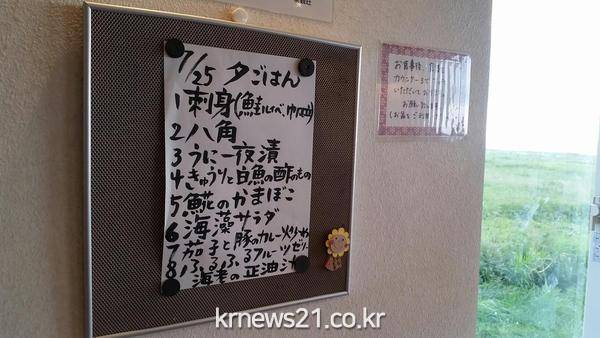 7/25 夕ごはん
1 刺身(鮭ルイベ、巾
2 八角
3 うに一夜漬
4 きゅうりと白魚の酢のもの
5 鰊のかまぼこ
6 海藻サラダ
7 茄子と豚のカレー炒め
8 ふるふるフルーツゼリー
海老の正油汁
お食事後、
カウンターまで
いただいて
お願い
krnews21.co.kr